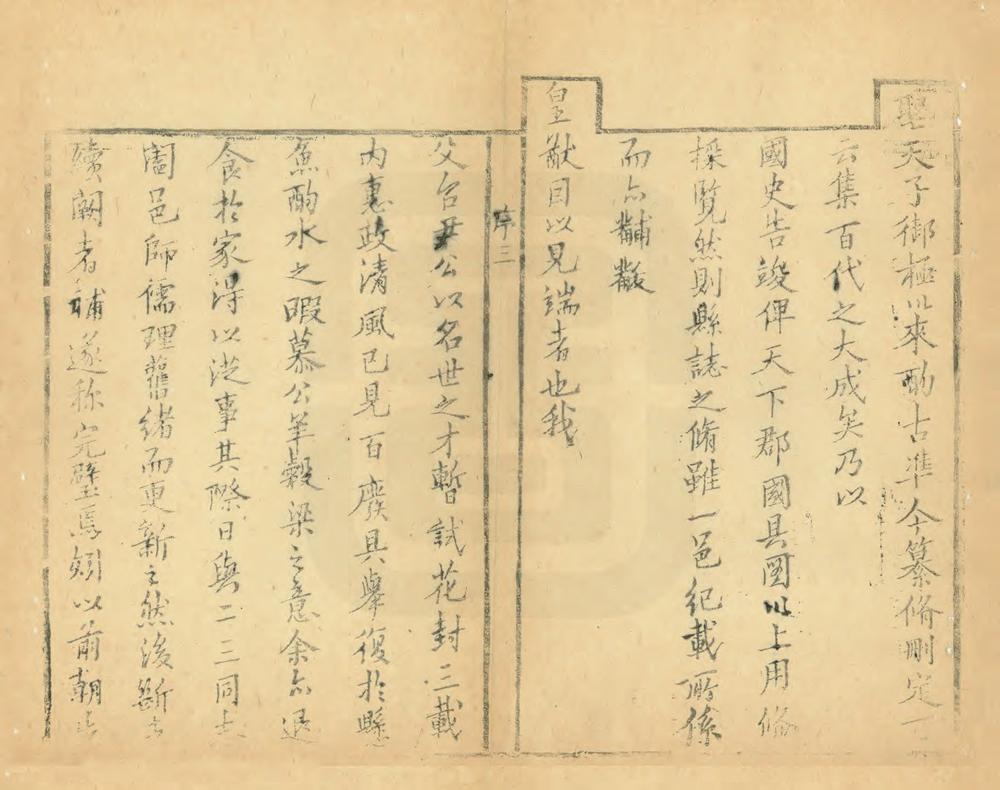 聖天子御極以來酌古準今纂脩刪定一
云集百代之大成矣乃以
國史告竣俾天下郡國具圖以上用脩
採覽然則縣誌之脩雖一邑紀載所係
而亦黼黻
皇猷目以見端者也我
序三
父台尹公以名世之才暫試花封三載
內惠政清風已見百廢具舉復於縣
魚酌水之暇慕公羊穀梁之意余亦退
食於家得以從事其際日與二三同志
闔邑師儒理舊緒而更新之然後斷者
續闕者補遂称完璧焉矧以前朝